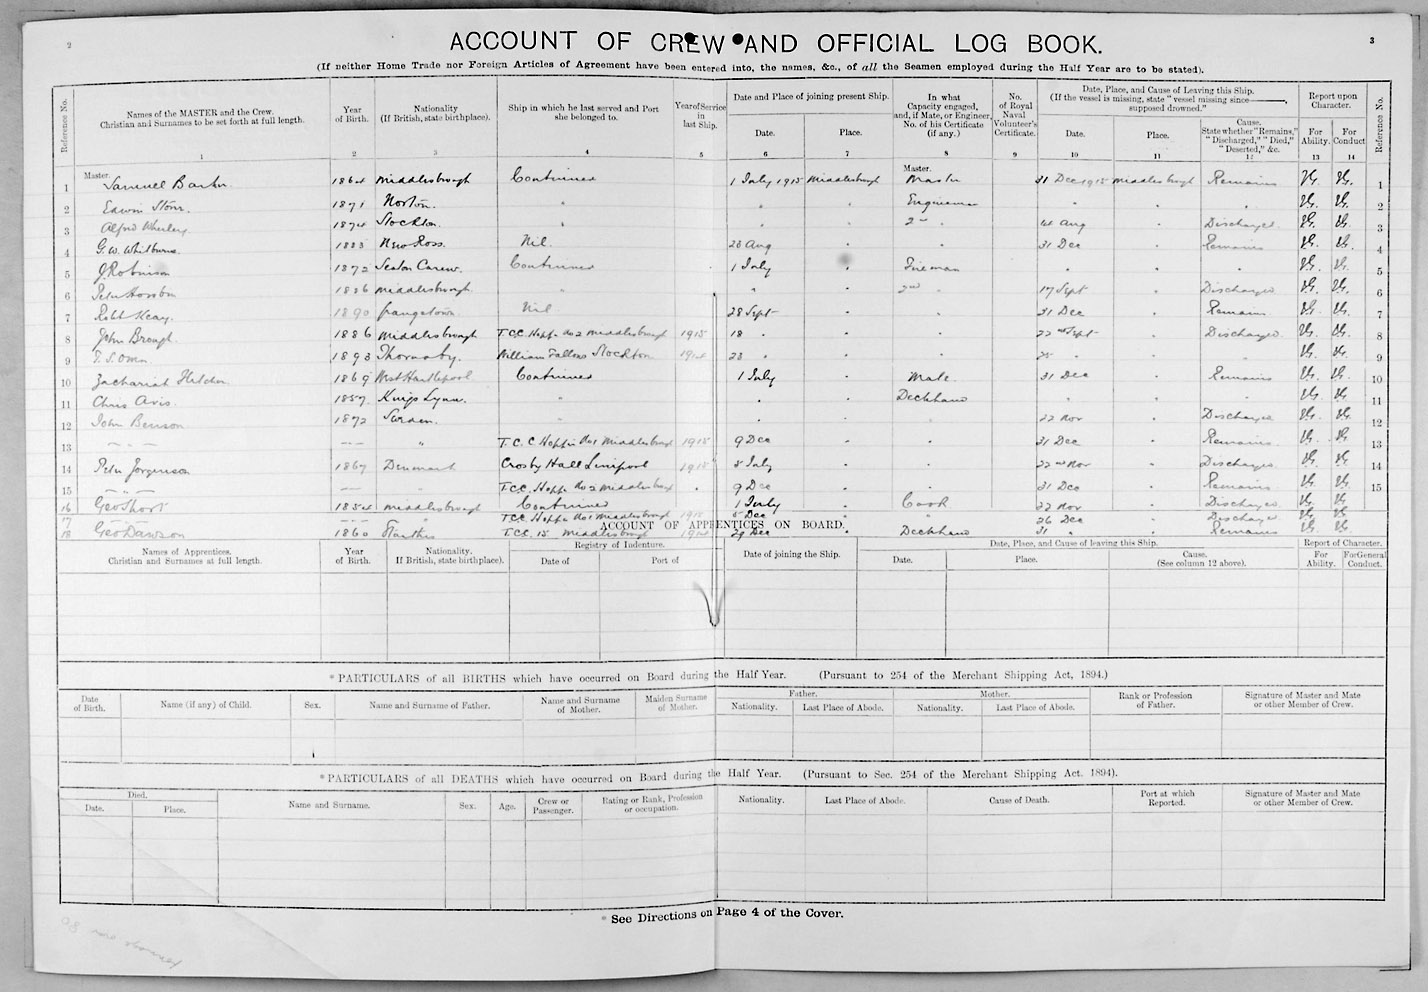 2
3
ACCOUNT OF CREW AND OFFICIAL LOG BOOK.
(If neither Home Trade nor Foreign Articles of Agreement have been entered into, the names, &c., of all the Seamen employed during the Half Year are to be stated).
Reference No. Names of the MASTER and the Crew. Christian and Surnames to be set forth at full length. Year of Birth. Nationality (If British, state birthplace). Ship in which he last served and Port she belonged to. Year of Service in last Ship. Date and Place of joining present Ship. Date. Place. In what Capacity engaged, and, if Mate, or Engineer, No. of his Certificate (if any.) No. of Royal Naval Volunteer's Certificate. Date, Place, and Cause of Leaving this Ship. (If the vessel is missing, state "vessel missing since ———, supposed drowned." Date. Place. Cause. State whether "Remains," "Discharged," "Died," "Deserted," &c. Report upon Character. For Ability. For Conduct Reference No.
1 2 3 4 5 6 7 8 9 10 11 12 13 14
Master. Master.
1 Samuel 1864 Middlesbrough Continues 1 July 1915 Middlesbrough Master 31 Dec 1915 Middlesbrough Remains VG. VG. 1
2 Edwin Storr. 1871 Norton. " " " Engineman " " " VG. VG. 2
3 Alfred 1874 Stockton. " " " 2nd " 14 Aug " Discharged VG. VG. 3
4 G. W. 1883 New Ross. Nil. 23 Aug " " 31 Dec " Remains VG. VG. 4
5 J. Robinson 1872 Seaton Carew. Continues 1 July " Fireman " " " VG. VG. 5
6 Peter 1886 Middlesbrough. " " " 2nd " 17 Sept " Discharged VG. VG. 6
7 Robt Keay. 1890 Grangetown. Nil 28 Sept " " 31 Dec " Remains VG. VG. 7
8 John Brough. 1886 Middlesbrough T.C.C. Hopper No 2 Middlesbrough 1915 18 " " " 22nd Sept " Discharged VG. VG. 8
9 T. S. Owen 1893 Thornaby. William Fallows Stockton 23 " " " 25 " " " VG. VG. 9
10 Zachariah 1869 West Hartlepool Continues 1 July " Mate. 31 Dec " Remains VG. VG. 10
11 Chris Avis. 1857 Kings Lynn. " " " Deckhand " " " VG. VG. 11
12 John Benson 1872 Sweden. " " " " 22 Nov " Discharged VG. VG. 12
13 — " — — — " T.C.C Hopper No 1 Middlesbrough 1915 9 Dec " " 31 Dec " Remains. VG. VG. 13
14 Peter Jorgenson 1867 Denmark Crosby Hall Liverpool 1915 8 July " " 22nd Nov " Discharged VG. VG. 14
15 — " — — — " T.C.C. Hopper No 2 Middlesbrough " 9 Dec " " 31 Dec " Remains VG. VG. 15
16 Geo Short 1854 Middlesbrough Continues 1 July " Cook 22 Nov " Discharged VG. VG.
17 — " — — — " T.C.C Hopper No 1 Middlesbrough 1915 8 Dec " " 26 Dec " Discharged VG. VG.
18 Geo Dawson 1860 Staithes T.C.C. 15 Middlesbrough 29 Dec " Deckhand 31 " " Remains VG. VG.
ACCOUNT OF APPRENTICES ON BOARD.
Names of Apprentices. Christian and Surnames at full length. Year of Birth. Nationality. If British, state birthplace). Registry of Indenture. Date of Port of Date of joining the Ship. Date, Place, and Cause of leaving this Ship. Date. Place. Cause. (See column 12 above). Report of Character. For Ability. For General Conduct.
*PARTICULARS of all BIRTHS which have occurred on Board during the Half Year. (Pursuant to 254 of the Merchant Shipping Act, 1894.)
Date of Birth. Name (if any) of Child. Sex. Name and Surname of Father. Name and Surname of Mother. Maiden Surname of Mother. Father. Nationality. Last Place of Abode. Mother. Nationality. Last Place of Abode. Rank or Profession of Father. Signature of Master and Mate or other Member of Crew.
*PARTICULARS of all DEATHS which have occurred on Board during the Half Year. (Pursuant to Sec. 254 of the Merchant Shipping Act. 1894).
Died. Date. Place. Name and Surname. Sex. Age. Crew or Passenger. Rating or Rank, Profession or occupation. Nationality. Last Place of Abode. Cause of Death. Port at which Reported. Signature of Master and Mate or other Member of Crew.
*See Directions on Page 4 of the Cover.